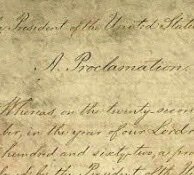 President of the United State
A Proclamation.
Whereas, on the twenty secon
ber, in the year of our Lord
hundred and sixty two, a pro
by the President of th